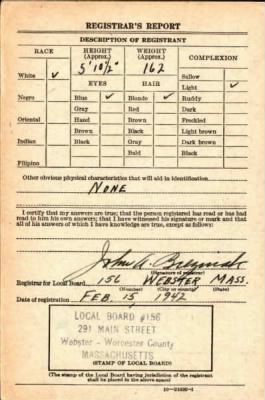 REGISTRAR'S REPORT
DESCRIPTION OF REGISTRANT
RACE HEIGHT (Approx.) WEIGHT (Approx.) COMPLEXION
5' 10½" 162
White ✓ Sallow
EYES HAIR Light ✓
Negro Blue ✓ Blonde ✓ Ruddy
Gray Red Dark
Oriental Hazel Brown Freckled
Brown Black Light brown
Indian Black Gray Dark brown
Bald Black
Filipino
Other obvious physical characteristics that will aid in identification
NONE
I certify that my answers are true; that the person registered has read or has had
read to him his own answers; that I have witnessed his signature or mark and that
all of his answers of which I have knowledge are true, except as follows:
John
(Signature of registrar)
Registrar for Local Board 156 WEBSTER MASS.
(Number) (City or county) (State)
Date of registration FEB. 15, 1942
LOCAL BOARD #156
291 MAIN STREET
Webster - Worcester County
MASSACHUSETTS
(STAMP OF LOCAL BOARD)
(The stamp of the Local Board having jurisdiction of the registrant
shall be placed in the above space)